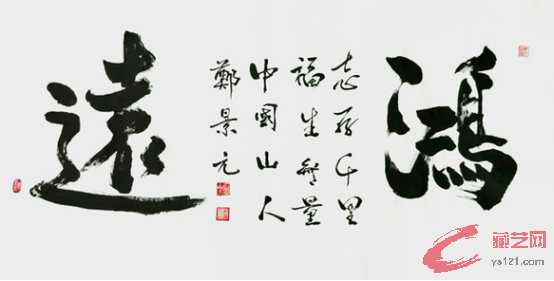 鴻
志存千里
福生無量
中國山人
鄭景元
遠
藏艺网
ys121.com